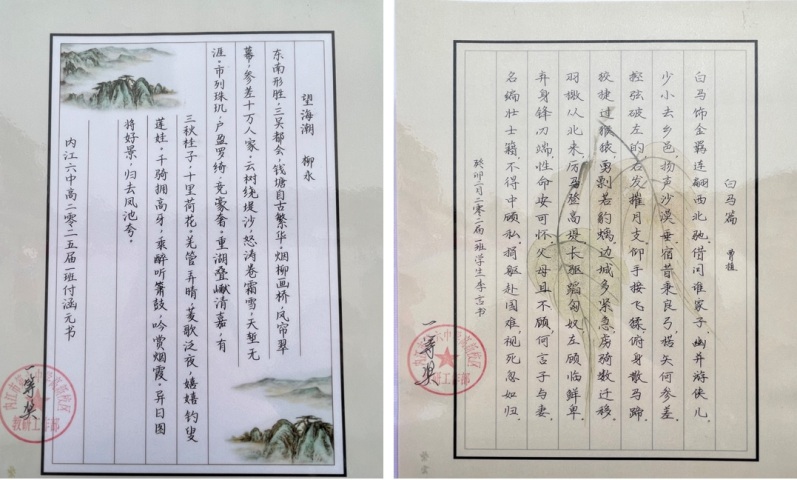 望海潮 柳永
东南形胜,三吴都会,钱塘自古繁华。烟柳画桥,风帘翠
幕,参差十万人家。云树绕堤沙,怒涛卷霜雪,天堑无
涯。市列珠玑,户盈罗绮,竞豪奢。重湖叠巘清嘉,有
三秋桂子,十里荷花。羌管弄晴,菱歌泛夜,嬉嬉钓叟
莲娃。千骑拥高牙,乘醉听箫鼓,吟赏烟霞。异日图
将好景,归去凤池夸。
内江六中高二零二五届一班付涵元书
一等奖
教研工作部
白马篇 曹植
白马饰金羁,连翩西北驰。借问谁家子,幽并游侠儿。
少小去乡邑,扬声沙漠垂。宿昔秉良弓,楛矢何参差。
控弦破左的,右发摧月支。仰手接飞猱,俯身散马蹄。
狡捷过猴猿,勇剽若豹螭。边城多紧急,虏骑数迁移。
羽檄从北来,厉马登高堤。长驱蹈匈奴,左顾临鲜卑。
弃身锋刃端,性命安可怀。父母且不顾,何言子与妻。
名编壮士籍,不得中顾私。捐躯赴国难,视死忽如归。
癸卯二月二零二届一班学生李言书
一等奖